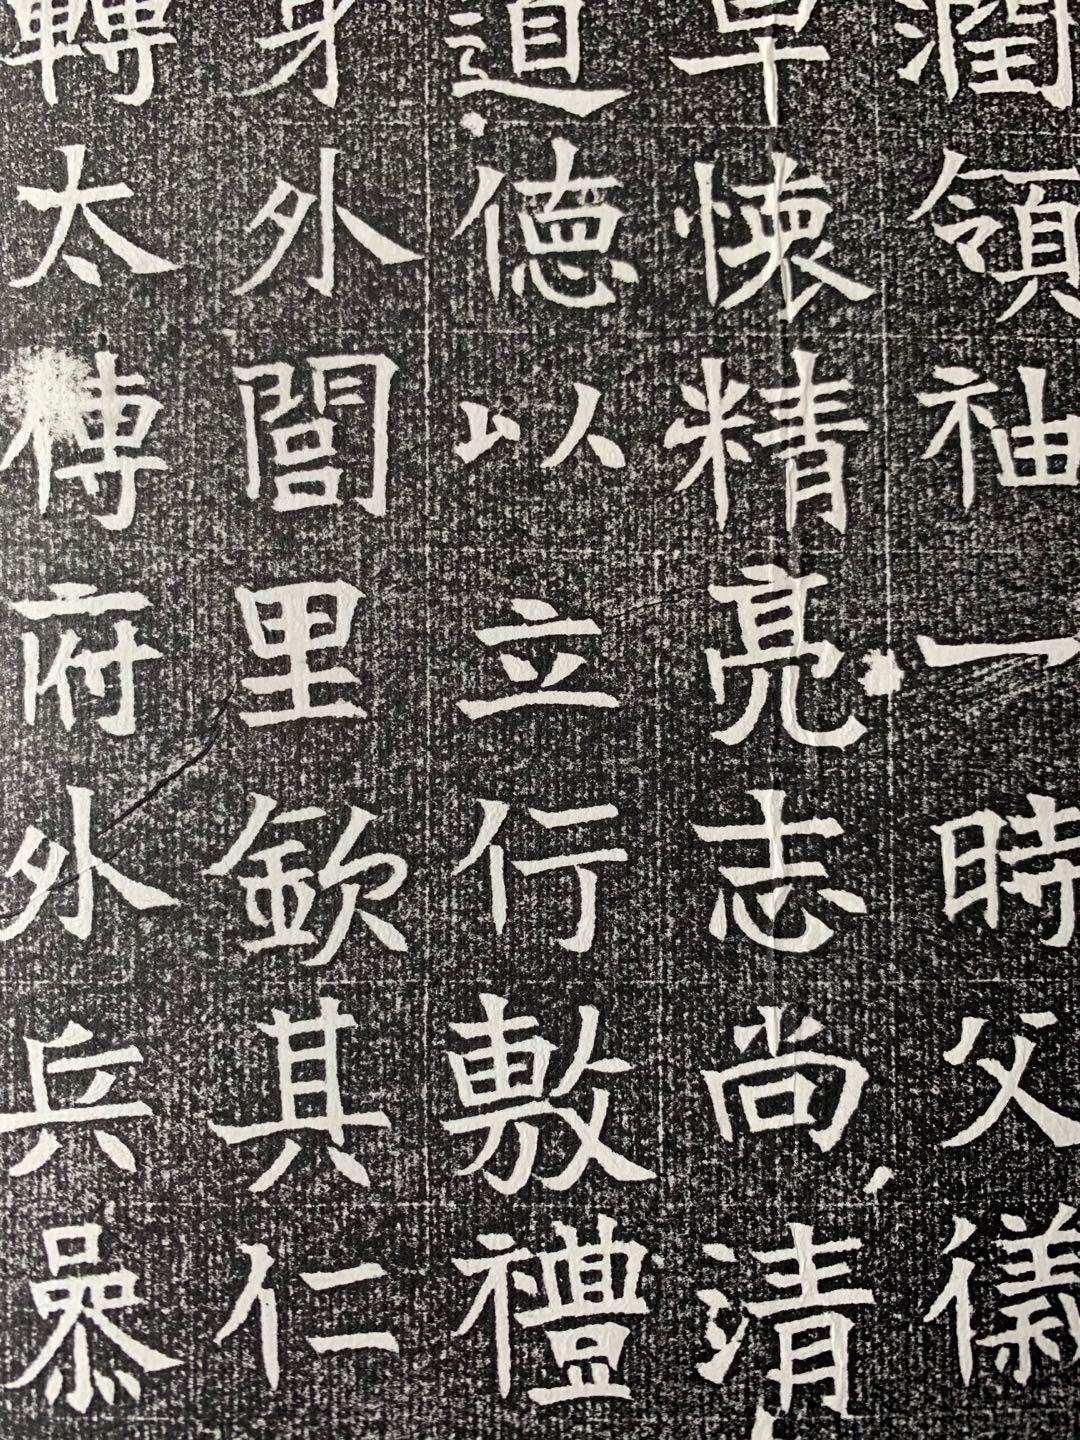 潤領袖一時父儀
早懷精亮志尚清
道德以立行敷禮
身外閭里欽其仁
轉太傅府外兵叅